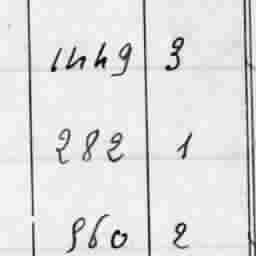 1449 3
282 1
960 2